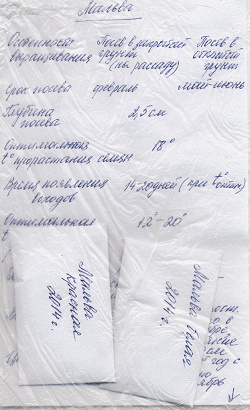 Мальва
Особенность Посев в закрытый Посев в
выращивания грунт открытый
(на рассаду) грунт
Срок посева февраль май-июнь
Глубина 2,5 см
посева
Оптимальная 18°
t° прорастания семян
Время появления 14-20 дней (при t° оптим)
всходов
Оптимальная 12°-20°
Мальва
красная
2014 г.
Мальва белая
2014 г.